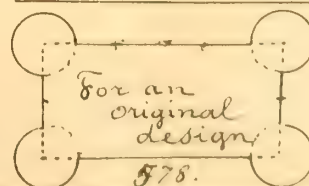 For an
original
design
578.